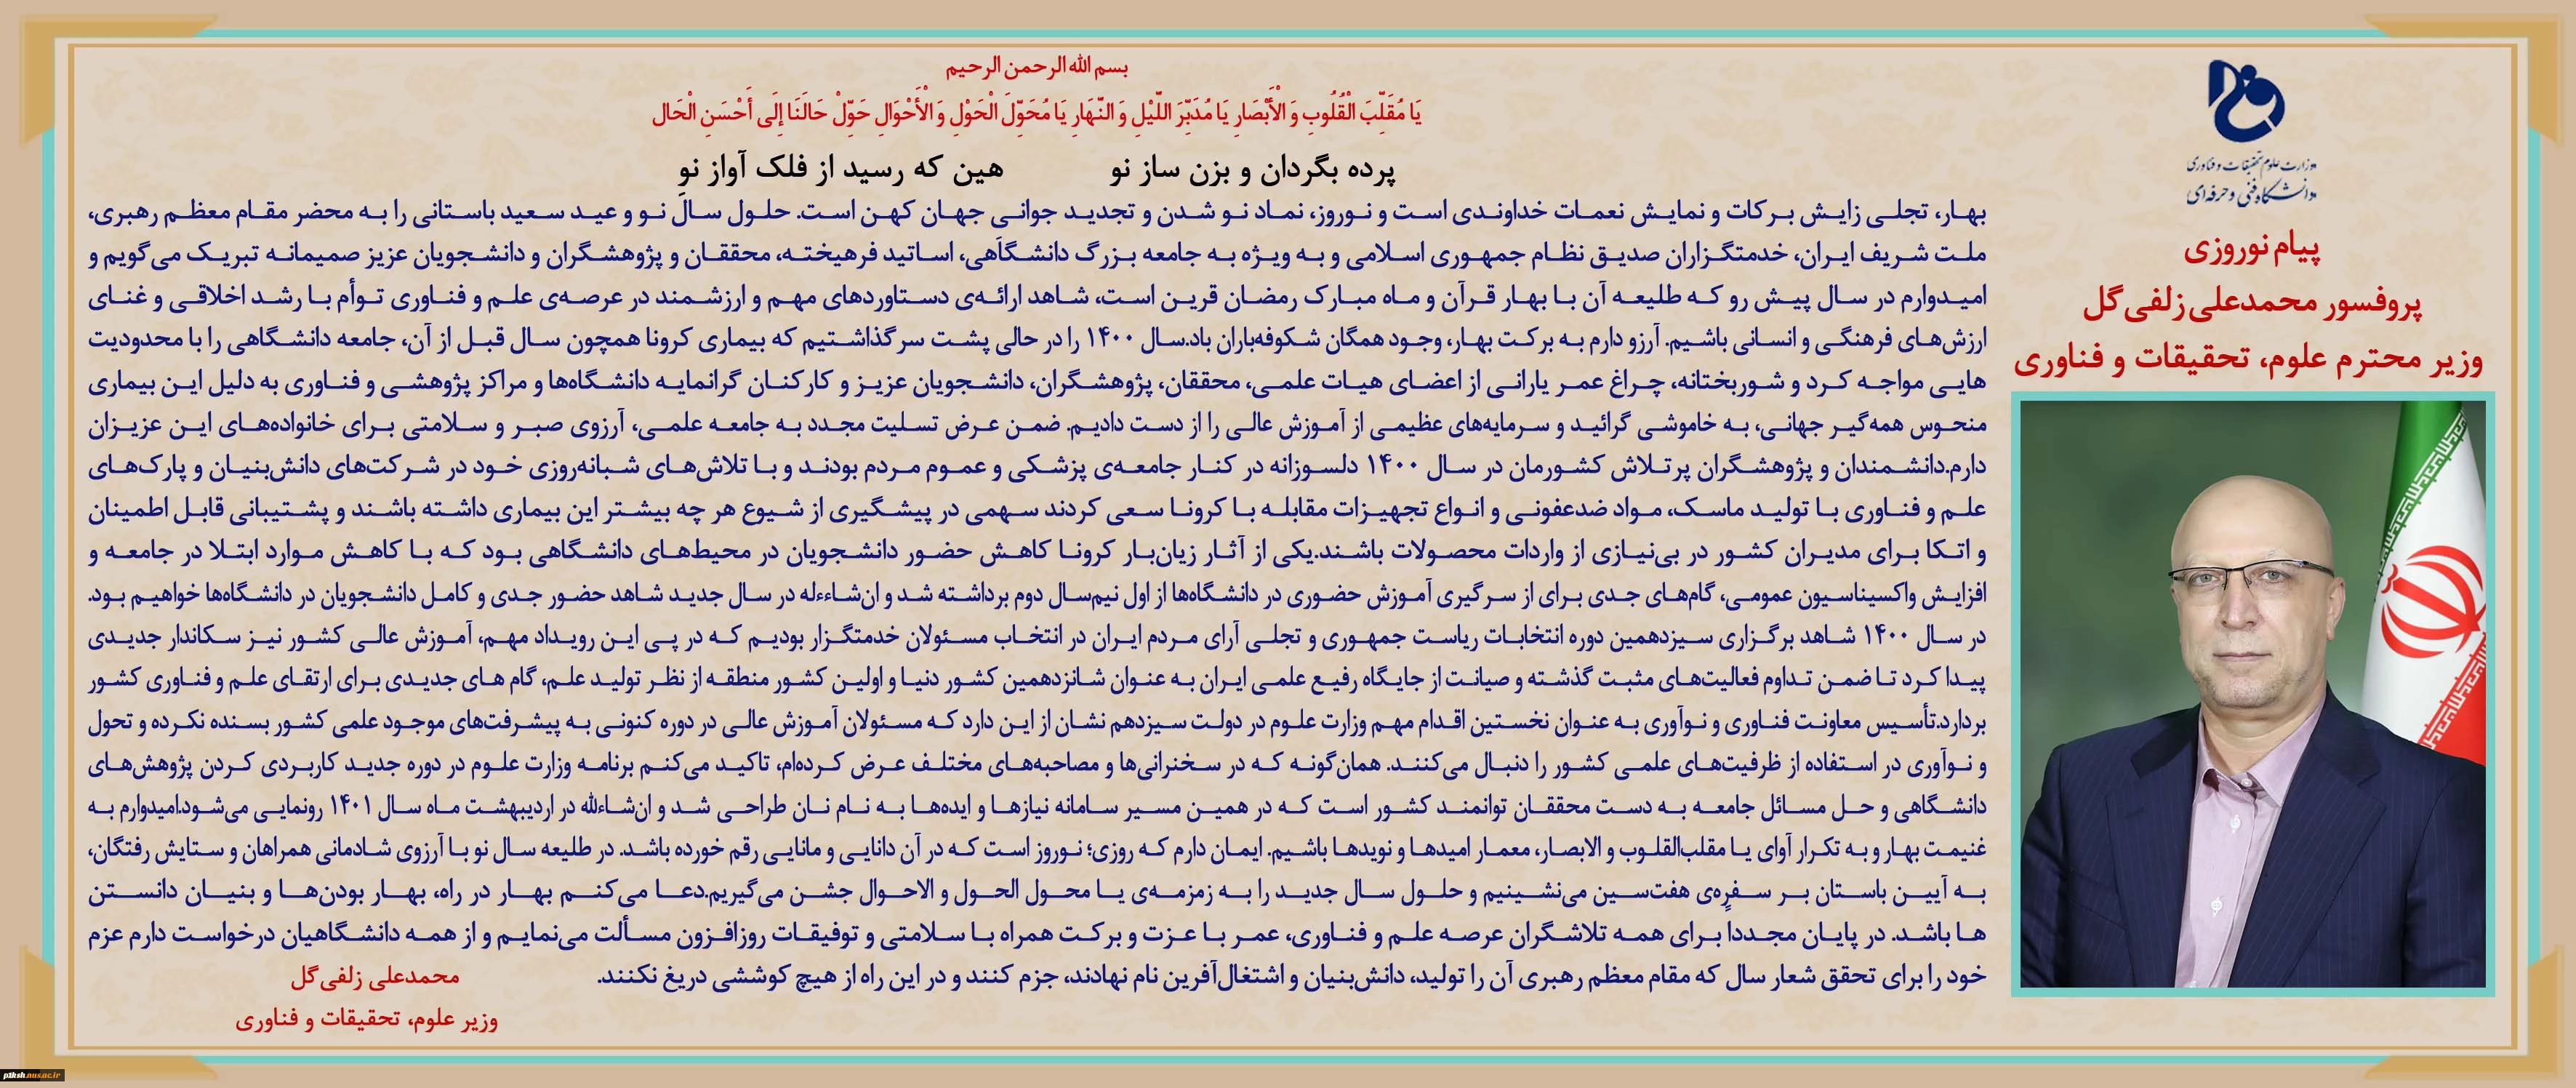 وزارت علوم تحقیقات و فناوری
دانشگاه فنی و حرفه‌ای
پیام نوروزی
پروفسور محمدعلی زلفی‌گل
وزیر محترم علوم، تحقیقات و فناوری
بسم الله الرحمن الرحیم
یَا مُقَلِّبَ الْقُلُوبِ وَ الْأَبْصَارِ یَا مُدَبِّرَ اللَّیْلِ وَ النَّهَارِ یَا مُحَوِّلَ الْحَوْلِ وَ الْأَحْوَالِ حَوِّلْ حَالَنَا إِلَى أَحْسَنِ الْحَال
پرده بگردان و بزن ساز نو هین که رسید از فلک آواز نو
بهار، تجلی زایش برکات و نمایش نعمات خداوندی است و نوروز، نماد نو شدن و تجدید جوانی جهان کهن است. حلول سال نو و عید سعید باستانی را به محضر مقام معظم رهبری،
ملت شریف ایران، خدمتگزاران صدیق نظام جمهوری اسلامی و به ویژه به جامعه بزرگ دانشگاهی، اساتید فرهیخته، محققان و پژوهشگران و دانشجویان عزیز صمیمانه تبریک می‌گویم و
امیدوارم در سال پیش رو که طلیعه آن با بهار قرآن و ماه مبارک رمضان قرین است، شاهد ارائه‌ی دستاوردهای مهم و ارزشمند در عرصه‌ی علم و فناوری توأم با رشد اخلاقی و غنای
ارزش‌های فرهنگی و انسانی باشیم. آرزو دارم به برکت بهار، وجود همگان شکوفه‌باران باد.سال ۱۴۰۰ را در حالی پشت سر گذاشتیم که بیماری کرونا همچون سال قبل از آن، جامعه دانشگاهی را با محدودیت
هایی مواجه کرد و شوربختانه، چراغ عمر یارانی از اعضای هیات علمی، محققان، پژوهشگران، دانشجویان عزیز و کارکنان گرانمایه دانشگاه‌ها و مراکز پژوهشی و فناوری به دلیل این بیماری
منحوس همه‌گیر جهانی، به خاموشی گرائید و سرمایه‌های عظیمی از آموزش عالی را از دست دادیم. ضمن عرض تسلیت مجدد به جامعه علمی، آرزوی صبر و سلامتی برای خانواده‌های این عزیزان
دارم.دانشمندان و پژوهشگران پرتلاش کشورمان در سال ۱۴۰۰ دلسوزانه در کنار جامعه‌ی پزشکی و عموم مردم بودند و با تلاش‌های شبانه‌روزی خود در شرکت‌های دانش‌بنیان و پارک‌های
علم و فناوری با تولید ماسک، مواد ضدعفونی و انواع تجهیزات مقابله با کرونا سعی کردند سهمی در پیشگیری از شیوع هر چه بیشتر این بیماری داشته باشند و پشتیبانی قابل اطمینان
و اتکا برای مدیران کشور در بی‌نیازی از واردات محصولات باشند.یکی از آثار زیان‌بار کرونا کاهش حضور دانشجویان در محیط‌های دانشگاهی بود که با کاهش موارد ابتلا در جامعه و
افزایش واکسیناسیون عمومی، گام‌های جدی برای از سرگیری آموزش حضوری در دانشگاه‌ها از اول نیم‌سال دوم برداشته شد و ان‌شاءءله در سال جدید شاهد حضور جدی و کامل دانشجویان در دانشگاه‌ها خواهیم بود.
در سال ۱۴۰۰ شاهد برگزاری سیزدهمین دوره انتخابات ریاست جمهوری و تجلی آرای مردم ایران در انتخاب مسئولان خدمتگزار بودیم که در پی این رویداد مهم، آموزش عالی کشور نیز سکاندار جدیدی
پیدا کرد تا ضمن تداوم فعالیت‌های مثبت گذشته و صیانت از جایگاه رفیع علمی ایران به عنوان شانزدهمین کشور دنیا و اولین کشور منطقه از نظر تولید علم، گام های جدیدی برای ارتقای علم و فناوری کشور
بردارد.تأسیس معاونت فناوری و نوآوری به عنوان نخستین اقدام مهم وزارت علوم در دولت سیزدهم نشان از این دارد که مسئولان آموزش عالی در دوره کنونی به پیشرفت‌های موجود علمی کشور بسنده نکرده و تحول
و نوآوری در استفاده از ظرفیت‌های علمی کشور را دنبال می‌کنند. همان‌گونه که در سخنرانی‌ها و مصاحبه‌های مختلف عرض کرده‌ام، تاکید می‌کنم برنامه وزارت علوم در دوره جدید کاربردی کردن پژوهش‌های
دانشگاهی و حل مسائل جامعه به دست محققان توانمند کشور است که در همین مسیر سامانه نیازها و ایده‌ها به نام نان طراحی شد و ان‌شاءلله در اردیبهشت ماه سال ۱۴۰۱ رونمایی می‌شود.امیدوارم به
غنیمت بهار و به تکرار آوای یا مقلب‌القلوب و الابصار، معمار امیدها و نویدها باشیم. ایمان دارم که روزی؛ نوروز است که در آن دانایی و مانایی رقم خورده باشد. در طلیعه سال نو با آرزوی شادمانی همراهان و ستایش رفتگان،
به آیین باستان بر سفره‌ی هفت‌سین می‌نشینیم و حلول سال جدید را به زمزمه‌ی یا محول الحول و الاحوال جشن می‌گیریم.دعا می‌کنم بهار در راه، بهار بودن‌ها و بنیان دانستن
ها باشد. در پایان مجدداً برای همه تلاشگران عرصه علم و فناوری، عمر با عزت و برکت همراه با سلامتی و توفیقات روزافزون مسألت می‌نمایم و از همه دانشگاهیان درخواست دارم عزم
خود را برای تحقق شعار سال که مقام معظم رهبری آن را تولید، دانش‌بنیان و اشتغال‌آفرین نام نهادند، جزم کنند و در این راه از هیچ کوششی دریغ نکنند.
محمدعلی زلفی‌گل
وزیر علوم، تحقیقات و فناوری
p1ksh.nus.ac.ir